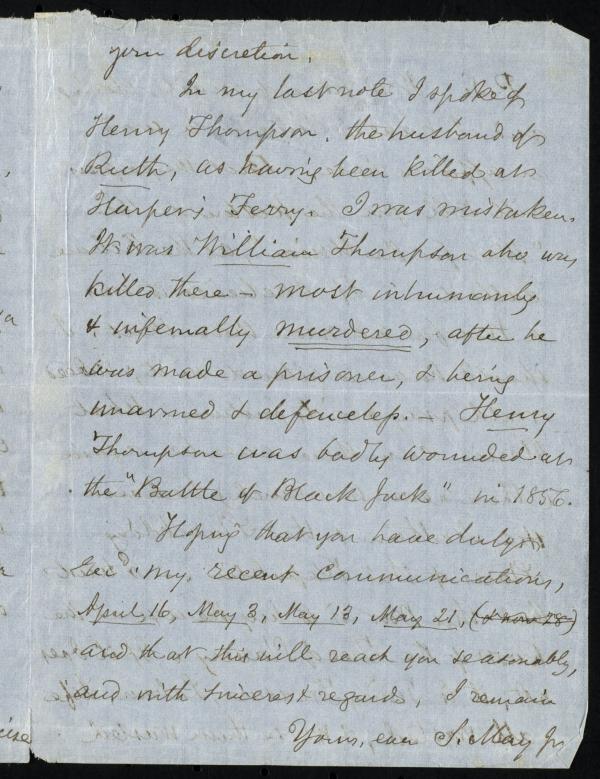 your discretion.
In my last note I spoke of
Henry Thompson, the husband of
Ruth, as having been killed at
Harper's Ferry. I was mistaken.
It was William Thompson who was
killed there – most inhumanly
& infernally murdered, after he
was made a prisoner, & being
unarmed & defenceless. – Henry
Thompson was badly wounded at
the "Battle of Black Jack" in 1856.
Hoping that you have duly
Rec'd. my recent communications,
April 16, May 3, May 13, May 21, (& now 28)
and that this will reach you seasonably,
and with sincerest regards, I remain
Yours, ever S. May Jr